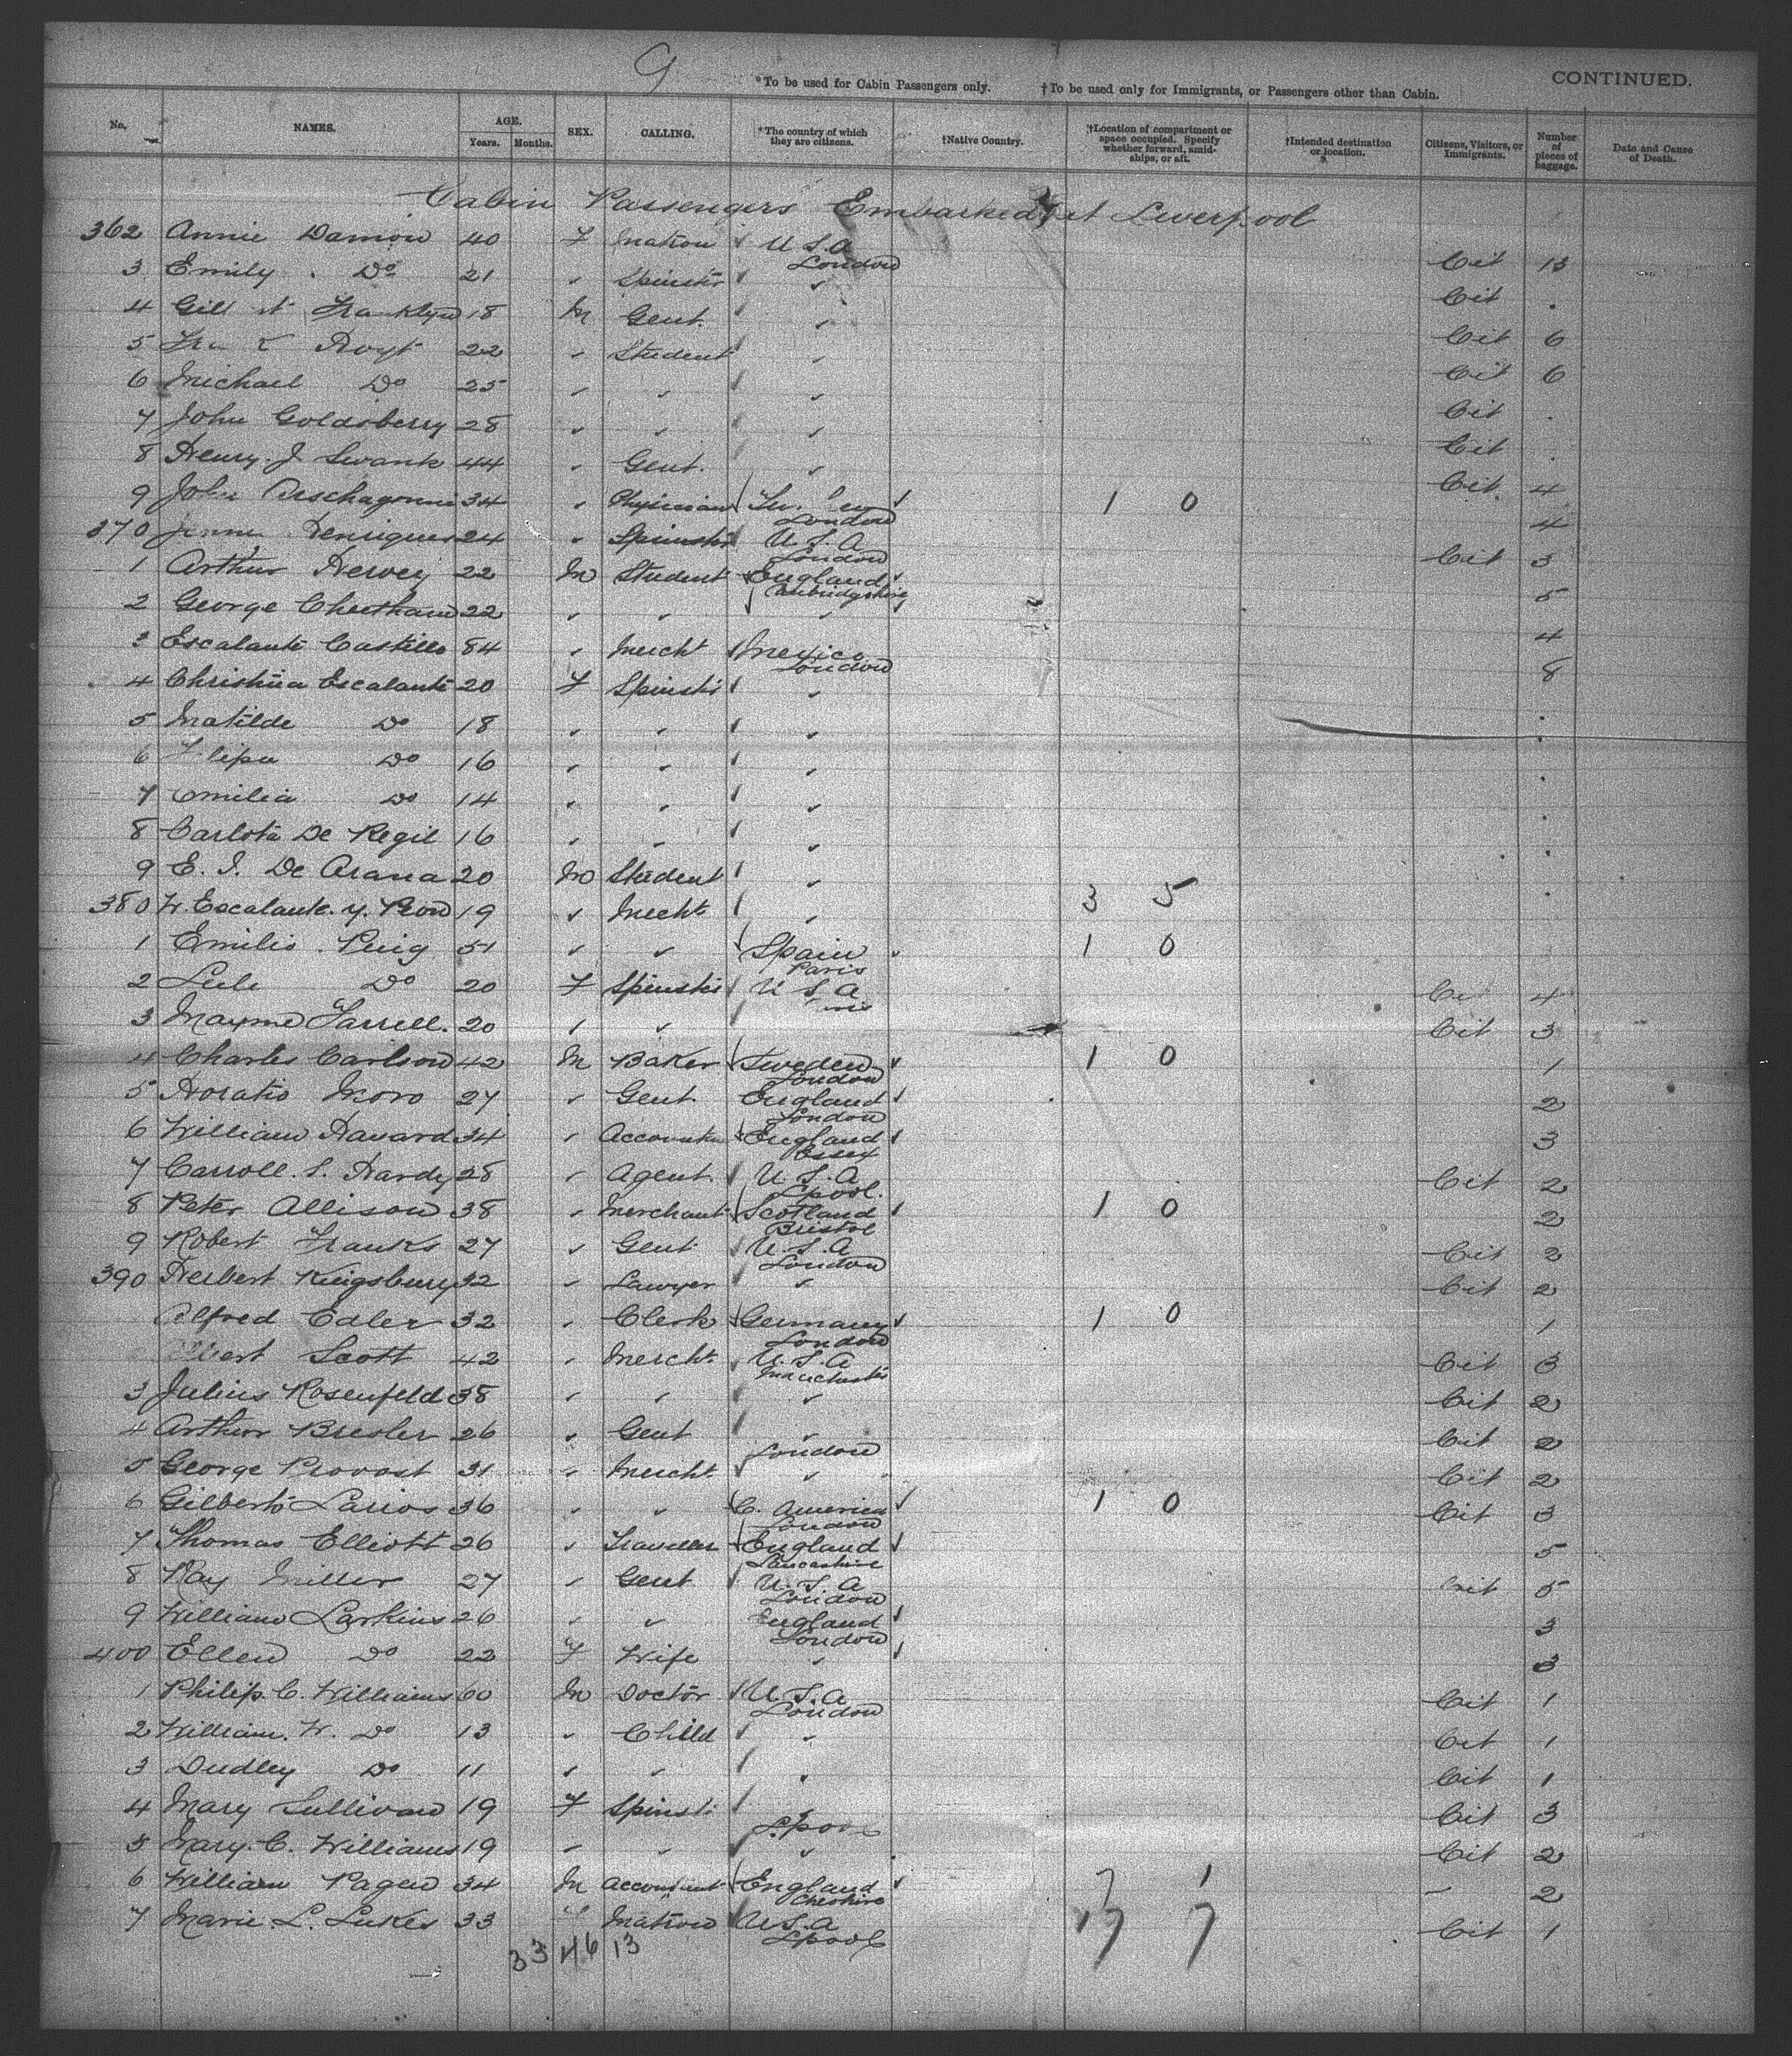 9
*To be used for Cabin Passengers only. †To be used only for Immigrants, or Passengers other than Cabin. CONTINUED.
No. NAMES. AGE. Years. Months. SEX. CALLING. *The country of which they are citizens. †Native Country. †Location of compartment or space occupied. Specify whether forward, amidships, or aft. †Intended destination or location. Citizens, Visitors, or Immigrants. Number of pieces of baggage. Date and Cause of Death.
Cabin Passengers Embarked at Liverpool
362 Annie Damon 40 F Matron U.S.A London Cit 13
3 Emily Do 21 " Spinster " Cit .
4 Gill Franklyn 18 M Gent. " Cit 6
5 Hoyt 22 " Student " Cit 6
6 Michael Do 25 " " " Cit .
7 John Goldsberry 28 " " " Cit .
8 Henry J Swank 44 " Gent. " Cit 4
9 John 34 " Physician London 1 0 4
370 Henriques 24 " Spinster U.S.A London Cit 3
1 Arthur Hervey 22 M Student England Cambridgshire 5
2 George Cheetham 22 " " " 4
3 Escalante Castillo 84 " Mercht Mexico London 8
4 Christina Escalante 20 F Spinstr " .
5 Matilde Do 18 " " " .
6 Do 16 " " " .
7 Emilia Do 14 " " " .
8 Carlota De Regil 16 " " " .
9 E. I. De Arana 20 M Student " .
380 Escalante y. Peon 19 " Mercht " 3 5
1 Emilio Puig 51 " " Spain Paris 1 0
2 Do 20 F Spinstr U S A Cit 4
3 Mayme Farrell. 20 " " Cit 3
4 Charles Carlson 42 M Baker Sweden London 1 0 1
5 Horatio Moro 27 " Gent England London 2
6 William Havard 34 " England Essex 3
7 Carroll. S. Hardy 28 " Agent. U.S.A Lpool. Cit 2
8 Peter Allison 38 " Merchant Scotland Bristol 1 0 2
9 Robert Franks 27 " Gent U.S.A London Cit 2
390 Herbert Kingsbury 32 " Lawyer " Cit 2
Alfred Edler 32 " Clerk Germany London 1 0 1
Scott 42 " Mercht. U.S.A Manchester Cit 3
3 Julius Rosenfeld 38 " " " Cit 2
4 Arthur Bresler 26 " Gent " London Cit 2
5 George Provost 31 " Mercht " Cit 2
6 Gilberto Larios 36 " " C. America London 1 0 Cit 3
7 Thomas Elliott 26 " Traveller England Lancashire 5
8 Ray Miller 27 " Gent U.S.A London Cit 5
9 William Larkins 26 " " England London 3
400 Ellen Do 22 F Wife " 3
1 Philip. C. Williams 60 M Doctor U.S.A London Cit 1
2 William. W. Do 13 " Child " Cit 1
3 Dudley Do 11 " " " Cit 1
4 Mary Sullivan 19 F Spinst Lpool Cit 3
5 Mary. C. Williams 19 " " " Cit 2
6 William Pagen 34 M Accountant England Cheshire 2
7 Marie L. Lukes 33 Matron U.S.A Lpool Cit 1
33 46 13